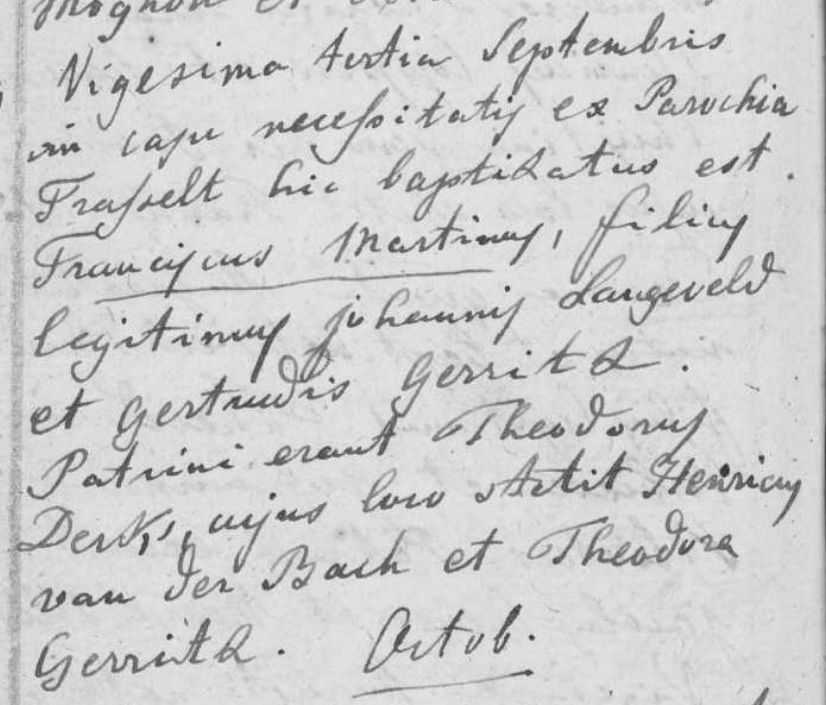 Vigesima tertia Septembris
in casu necessitatis ex Parochia
Frasselt hic baptizatus est.
Franciscus Martinus, filius
legitimus Johannis Langeveld
et Gertrudis Gerritz.
Patrini erant Theodorus
Derks, cujus loco stetit Henricus
van der Bach et Theodora
Gerritz. Octob.